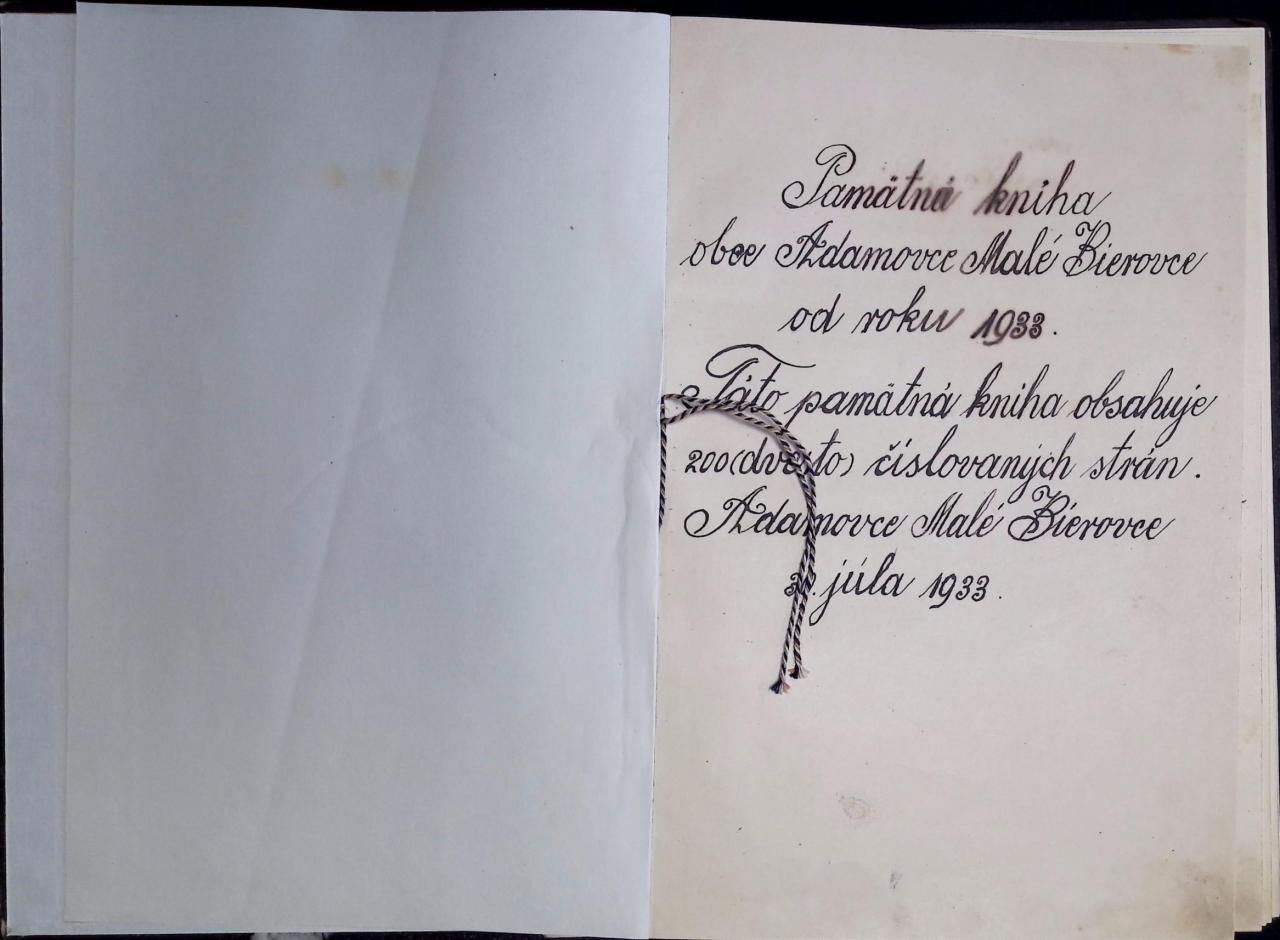 Pamätná kniha
obce Adamovce Malé Bierovce
od roku 1933.
Táto pamätná kniha obsahuje
200 (dvesto) číslovaných strán.
Adamovce Malé Bierovce
júla 1933.